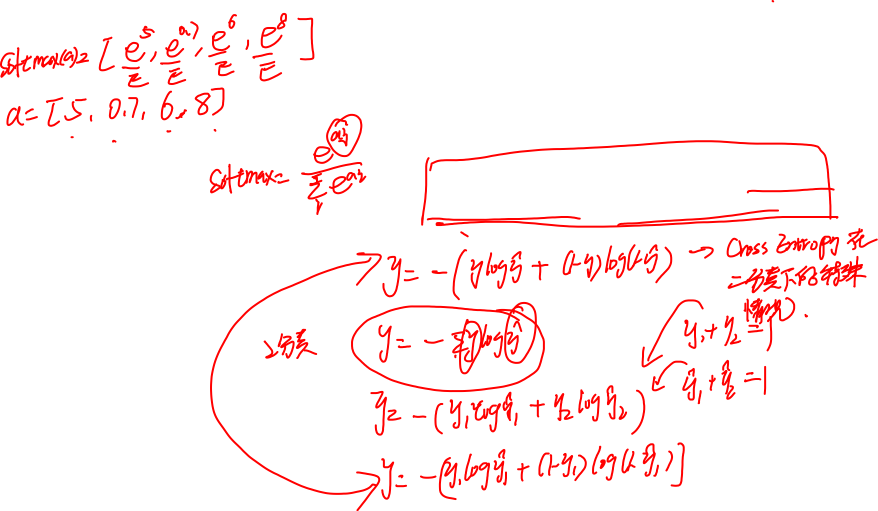 softmax(a)= [e^5/Σ, e^0.7/Σ, e^6/Σ, e^8/Σ]
a=[5, 0.7, 6, 8]
softmax= e^{a_i}/Σ_i e^{a_i}
y=-(y log ŷ + (1-y) log(1-ŷ)) → Cross Entropy 在
二分类下的特殊
情况).
2分类
y=-Σ y log ŷ
y₁+y₂=1
ŷ₁+ŷ₂=1
y=-(y₁ log ŷ₁ + y₂ log ŷ₂)
y=-[y₁ log ŷ₁ + (1-y₁) log(1-ŷ₁)]